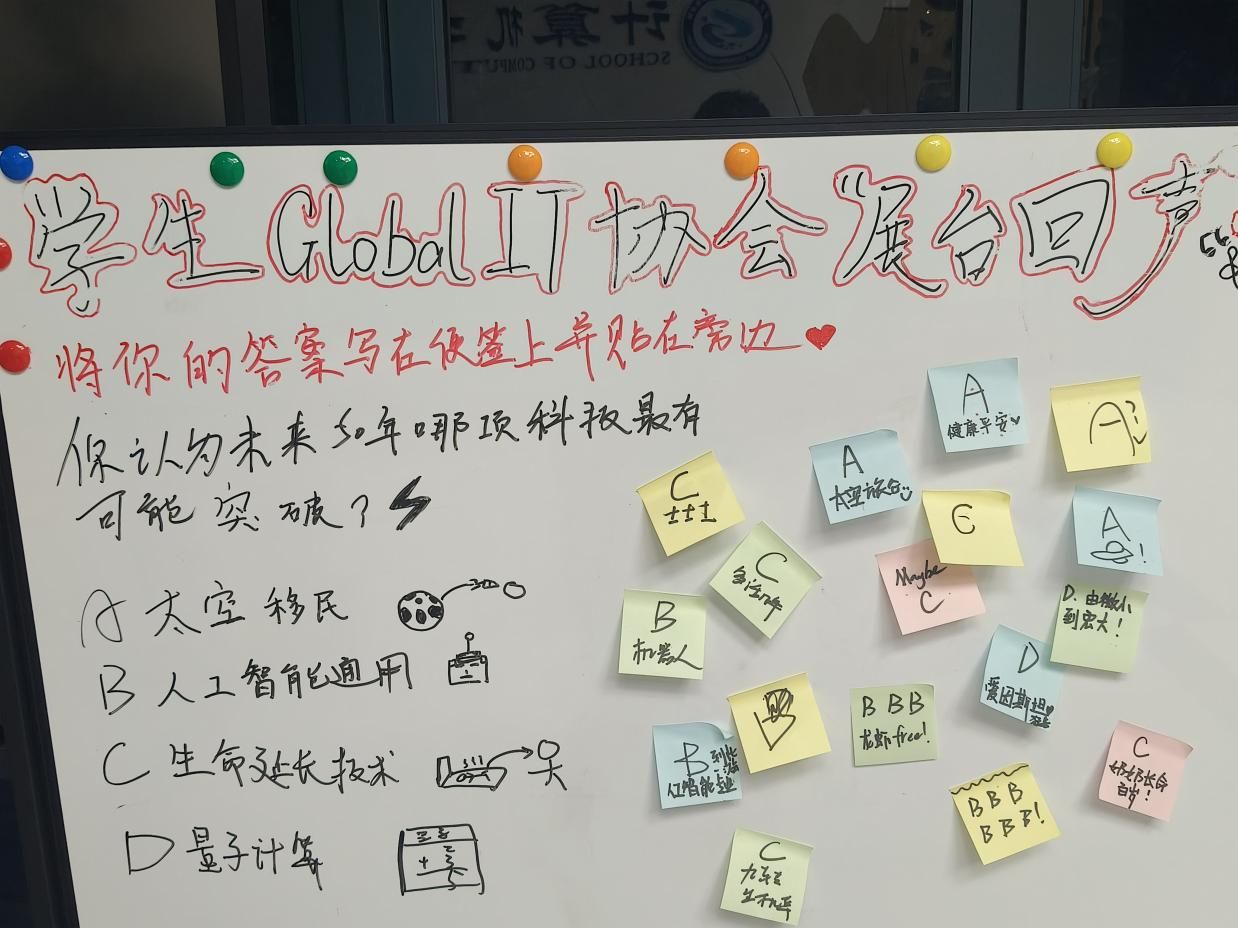 计算机
SCHOOL OF COMPU
学生 Global IT 协会“展台回声
将你的答案写在便签上并贴在旁边
你认为未来50年哪项科技最有
可能突破？
A 太空移民
B 人工智能通用
C 生命延长技术
D 量子计算
A
健康平安
A
A
太空旅行
C
土土土
E
A
!
C
多活几年
Maybe
C
D. 由微小
到宏大！
B
机器人
D
爱因斯坦
B
B B B
龙虾free!
B
人工智能专业
C
奶奶长命
百岁！
B B B
B B B!
C